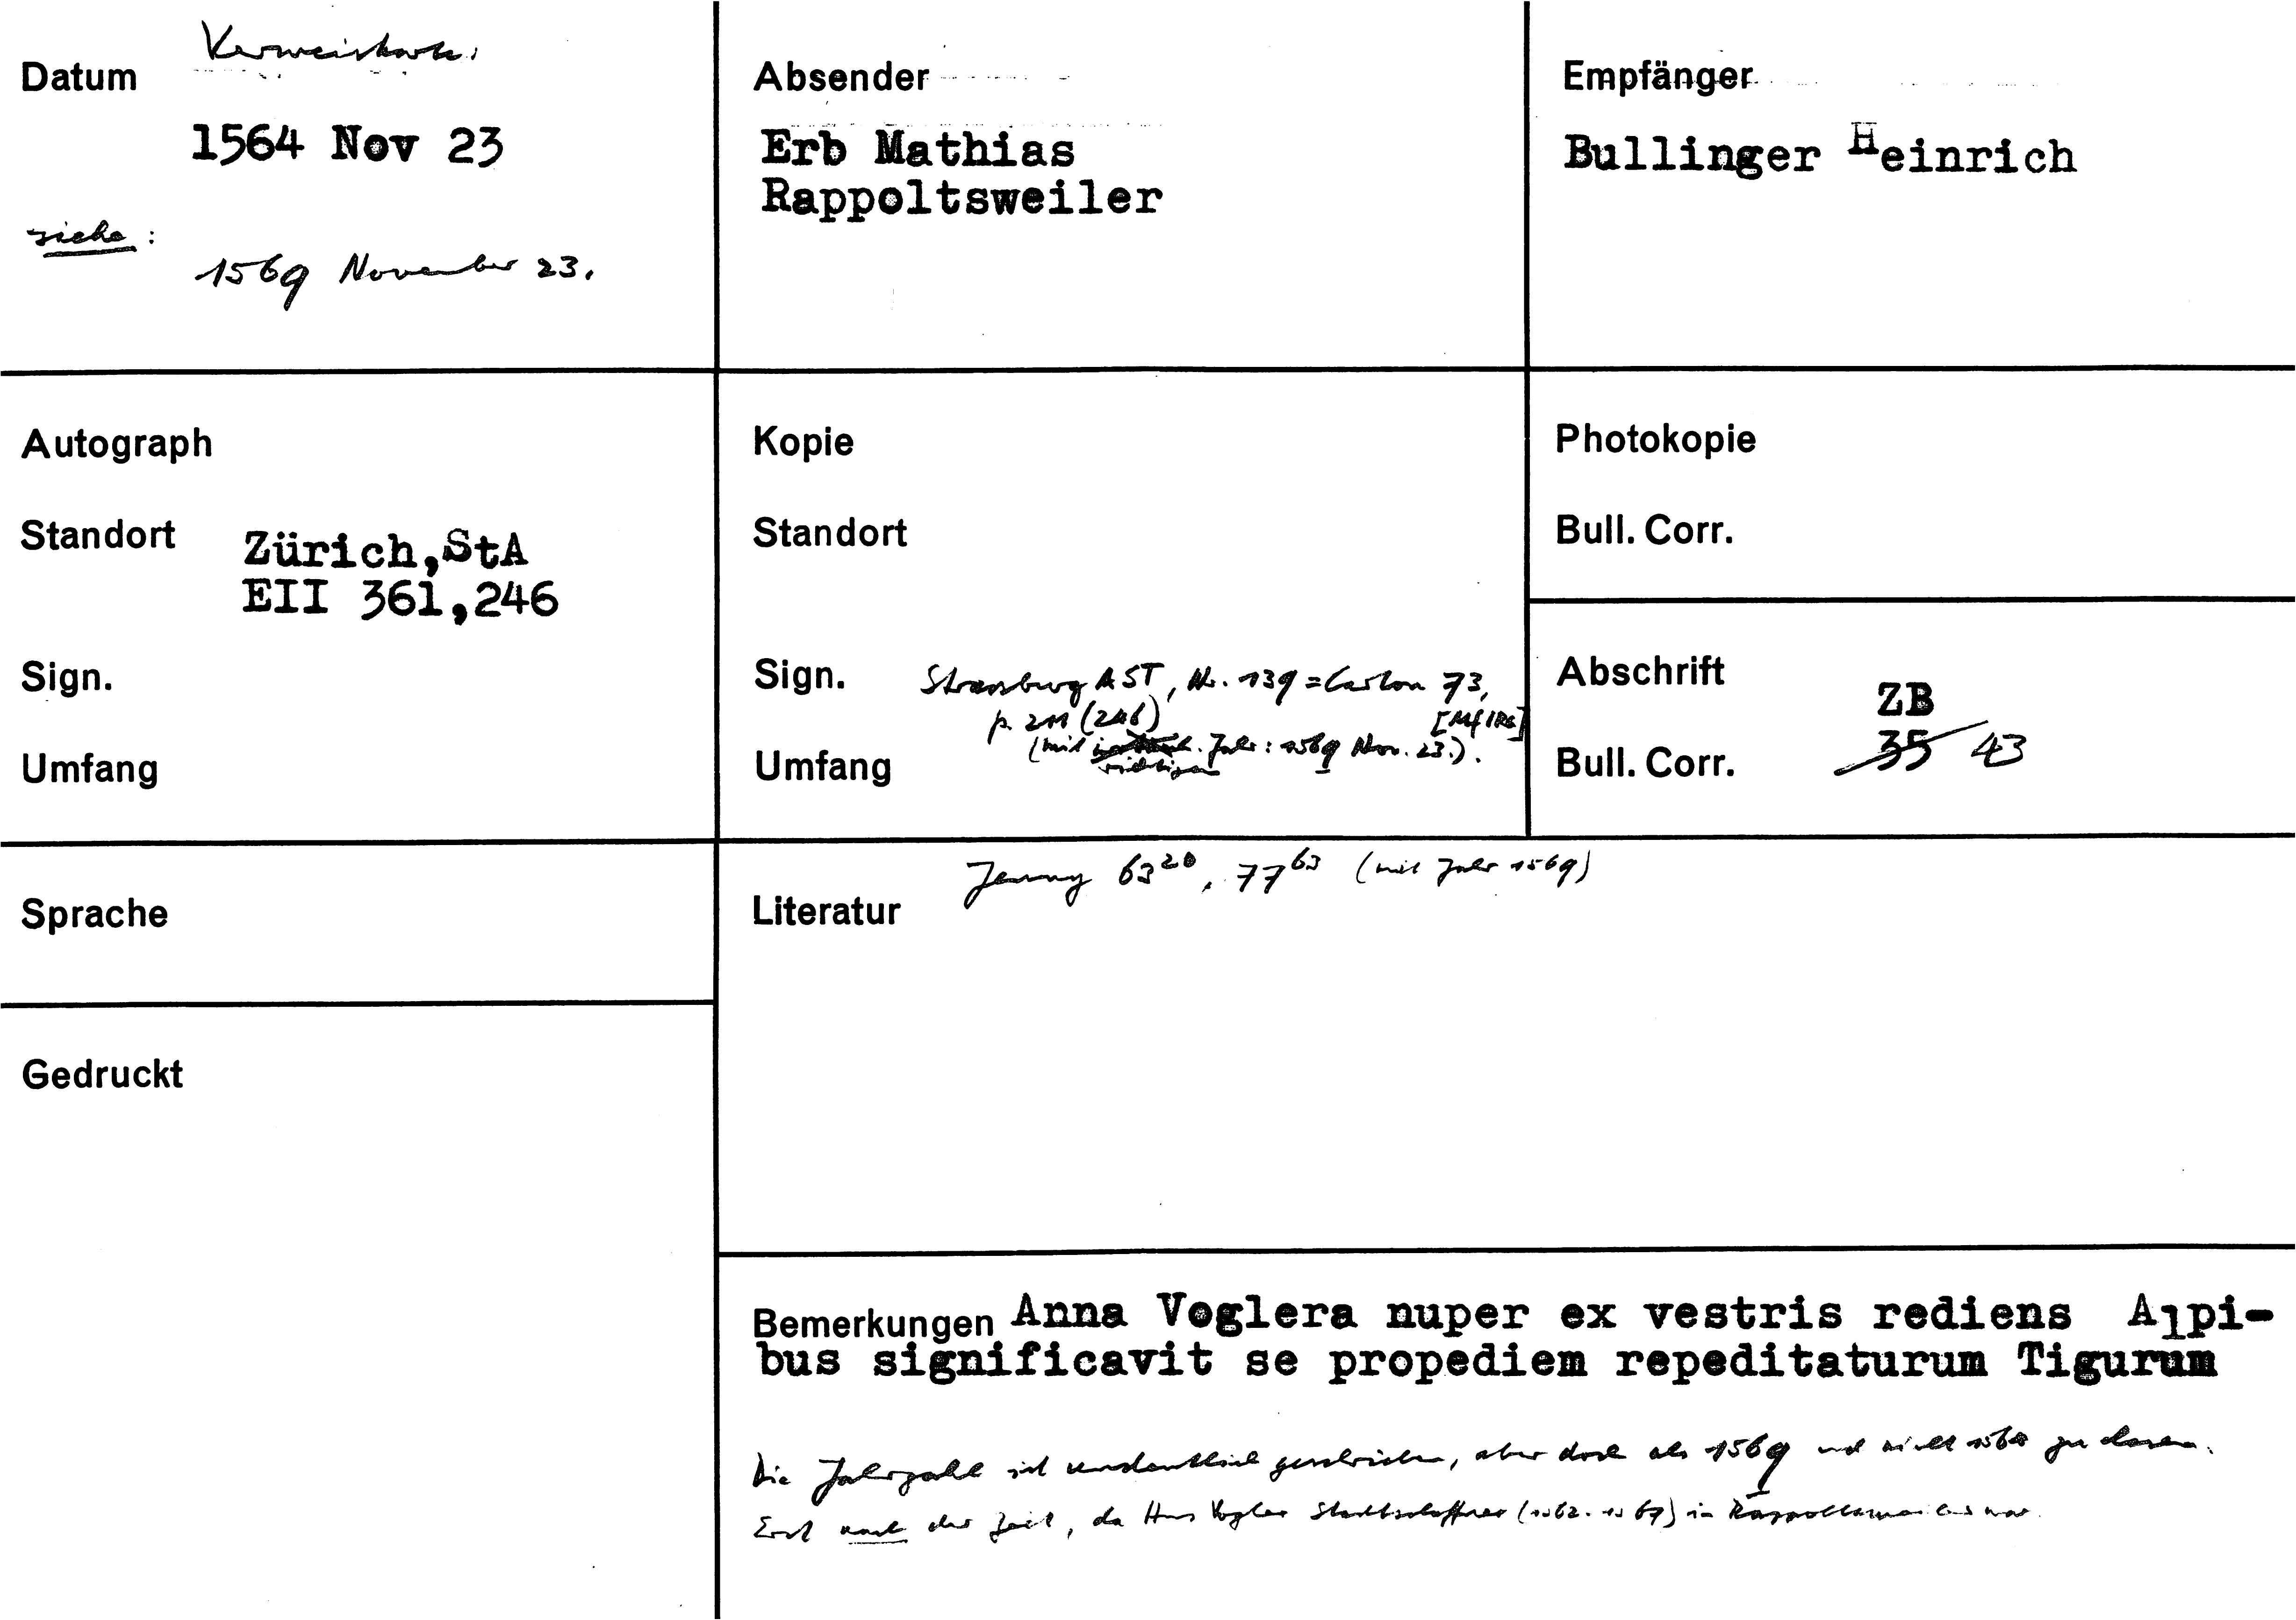 Verweiskarte.
Datum
1564 Nov 23
siehe :
1569 November 23.
Absender
Erb Mathias
Rappoltsweiler
Empfänger
Bullinger Heinrich
Autograph
Standort Zürich,StA
EII 361,246
Sign.
Umfang
Kopie
Standort
Sign. Strassburg AST, Nr. 139 = Carton 73,
p. 211 (246) [Mf IRG]
(mit richtigem Jahr: 1569 Nov. 23.).
Umfang
Photokopie
Bull. Corr.
Abschrift
ZB
Bull. Corr. 35 43
Sprache
Gedruckt
Jenny 63 20, 77 63 (mit Jahr 1569)
Literatur
Bemerkungen Anna Voglera nuper ex vestris rediens Alpi-
bus significavit se propediem repeditaturum Tigurum
Die Jahrzahl ist undeutlich geschrieben, aber doch als 1569 und nicht 1564 zu lesen.
Erst nach der Zeit, da Hans Vogler Stadtschaffner (1562-1567) in Rappoltsweiler war.